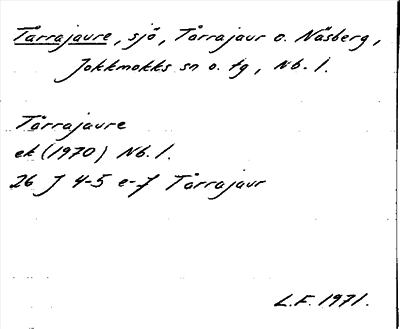 Tårrajaure, sjö, Tårrajaur o. Näsberg,
Jokkmokks sn o. tg, Nb. l.
Tårrajaure
ek (1970) Nb. l.
26 J 4-5 e-f Tårrajaur
L.F. 1971.